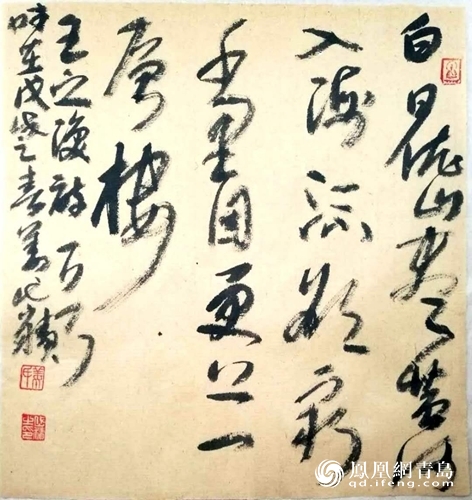 白日依山尽黄河
入海流欲穷
千里目更上一
层楼
王之涣诗
时在戊戌之春
鳳凰網青島
qd.ifeng.com